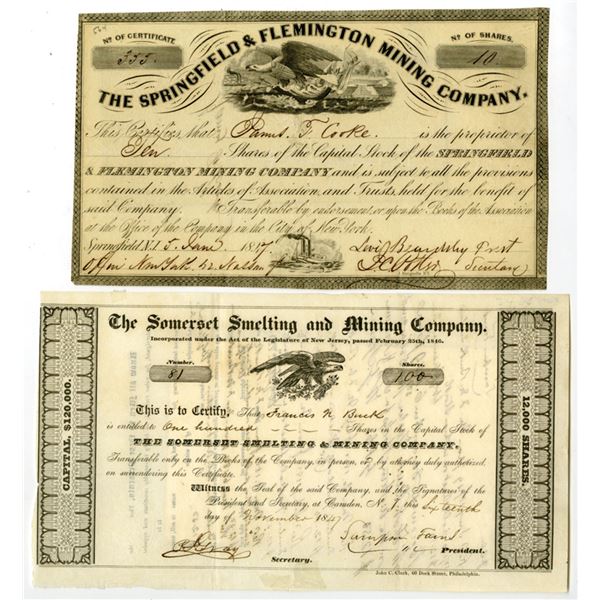 564
No. OF CERTIFICATE
No. OF SHARES.
355.
10
THE SPRINGFIELD & FLEMINGTON MINING COMPANY.
This Certifies that James. T. Cooke. is the proprietor of
Ten Shares of the Capital Stock of the SPRINGFIELD
& FLEMINGTON MINING COMPANY and is subject to all the provisions
contained in the Articles of Association and Trusts, held for the benefit of
said Company. Transferable by endorsement, or upon the Books of the Association
at the Office of the Company in the City of New York.
Springfield N.J. 5 June 1847. Levi Beardsley Prest
Office New York 42 Nassau Secretary
The Somerset Smelting and Mining Company.
Incorporated under the Act of the Legislature of New Jersey, passed February 25th, 1846.
Number.
Shares.
81
100
This is to Certify, That Francis N Buck
is entitled to One hundred Shares in the Capital Stock of
THE SOMERSET SMELTING & MINING COMPANY,
Transferable only on the Books of the Company, in person, or by attorney duly authorized,
on surrendering this Certificate.
Witness the Seal of the said Company, and the Signatures of the
President and Secretary, at Camden, N. J. this Sixteenth
day of November 1847
Gray
Secretary.
President.
John C. Clark, 60 Dock Street, Philadelphia.
CAPITAL, $120,000.
12,000 SHARES.